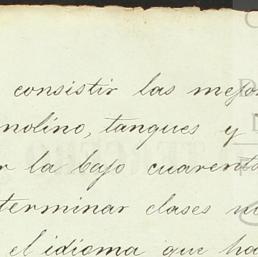 consistir las mejor
molino, tanques y
la bajo cuarenta
terminar clases
el idioma que ha